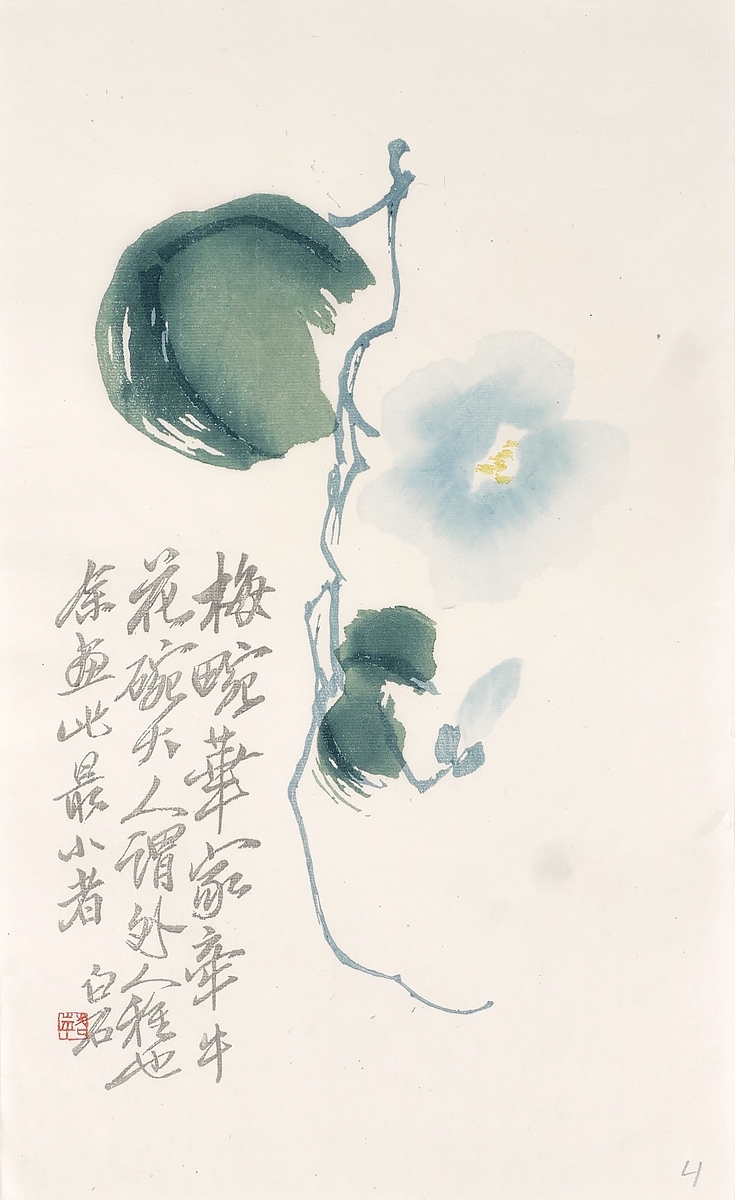 梅畹華家牽牛
花碗大人謂外人種也
余畫此最小者
白石
4